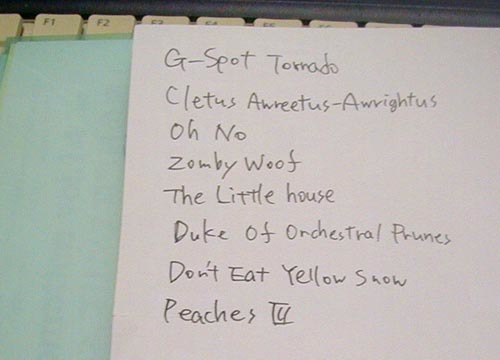 F1 F2
G-Spot Tornado
Cletus Awreetus-Awrightus
Oh No
Zomby Woof
The Little house
Duke Of Orchestral Prunes
Don't Eat Yellow Snow
Peaches III